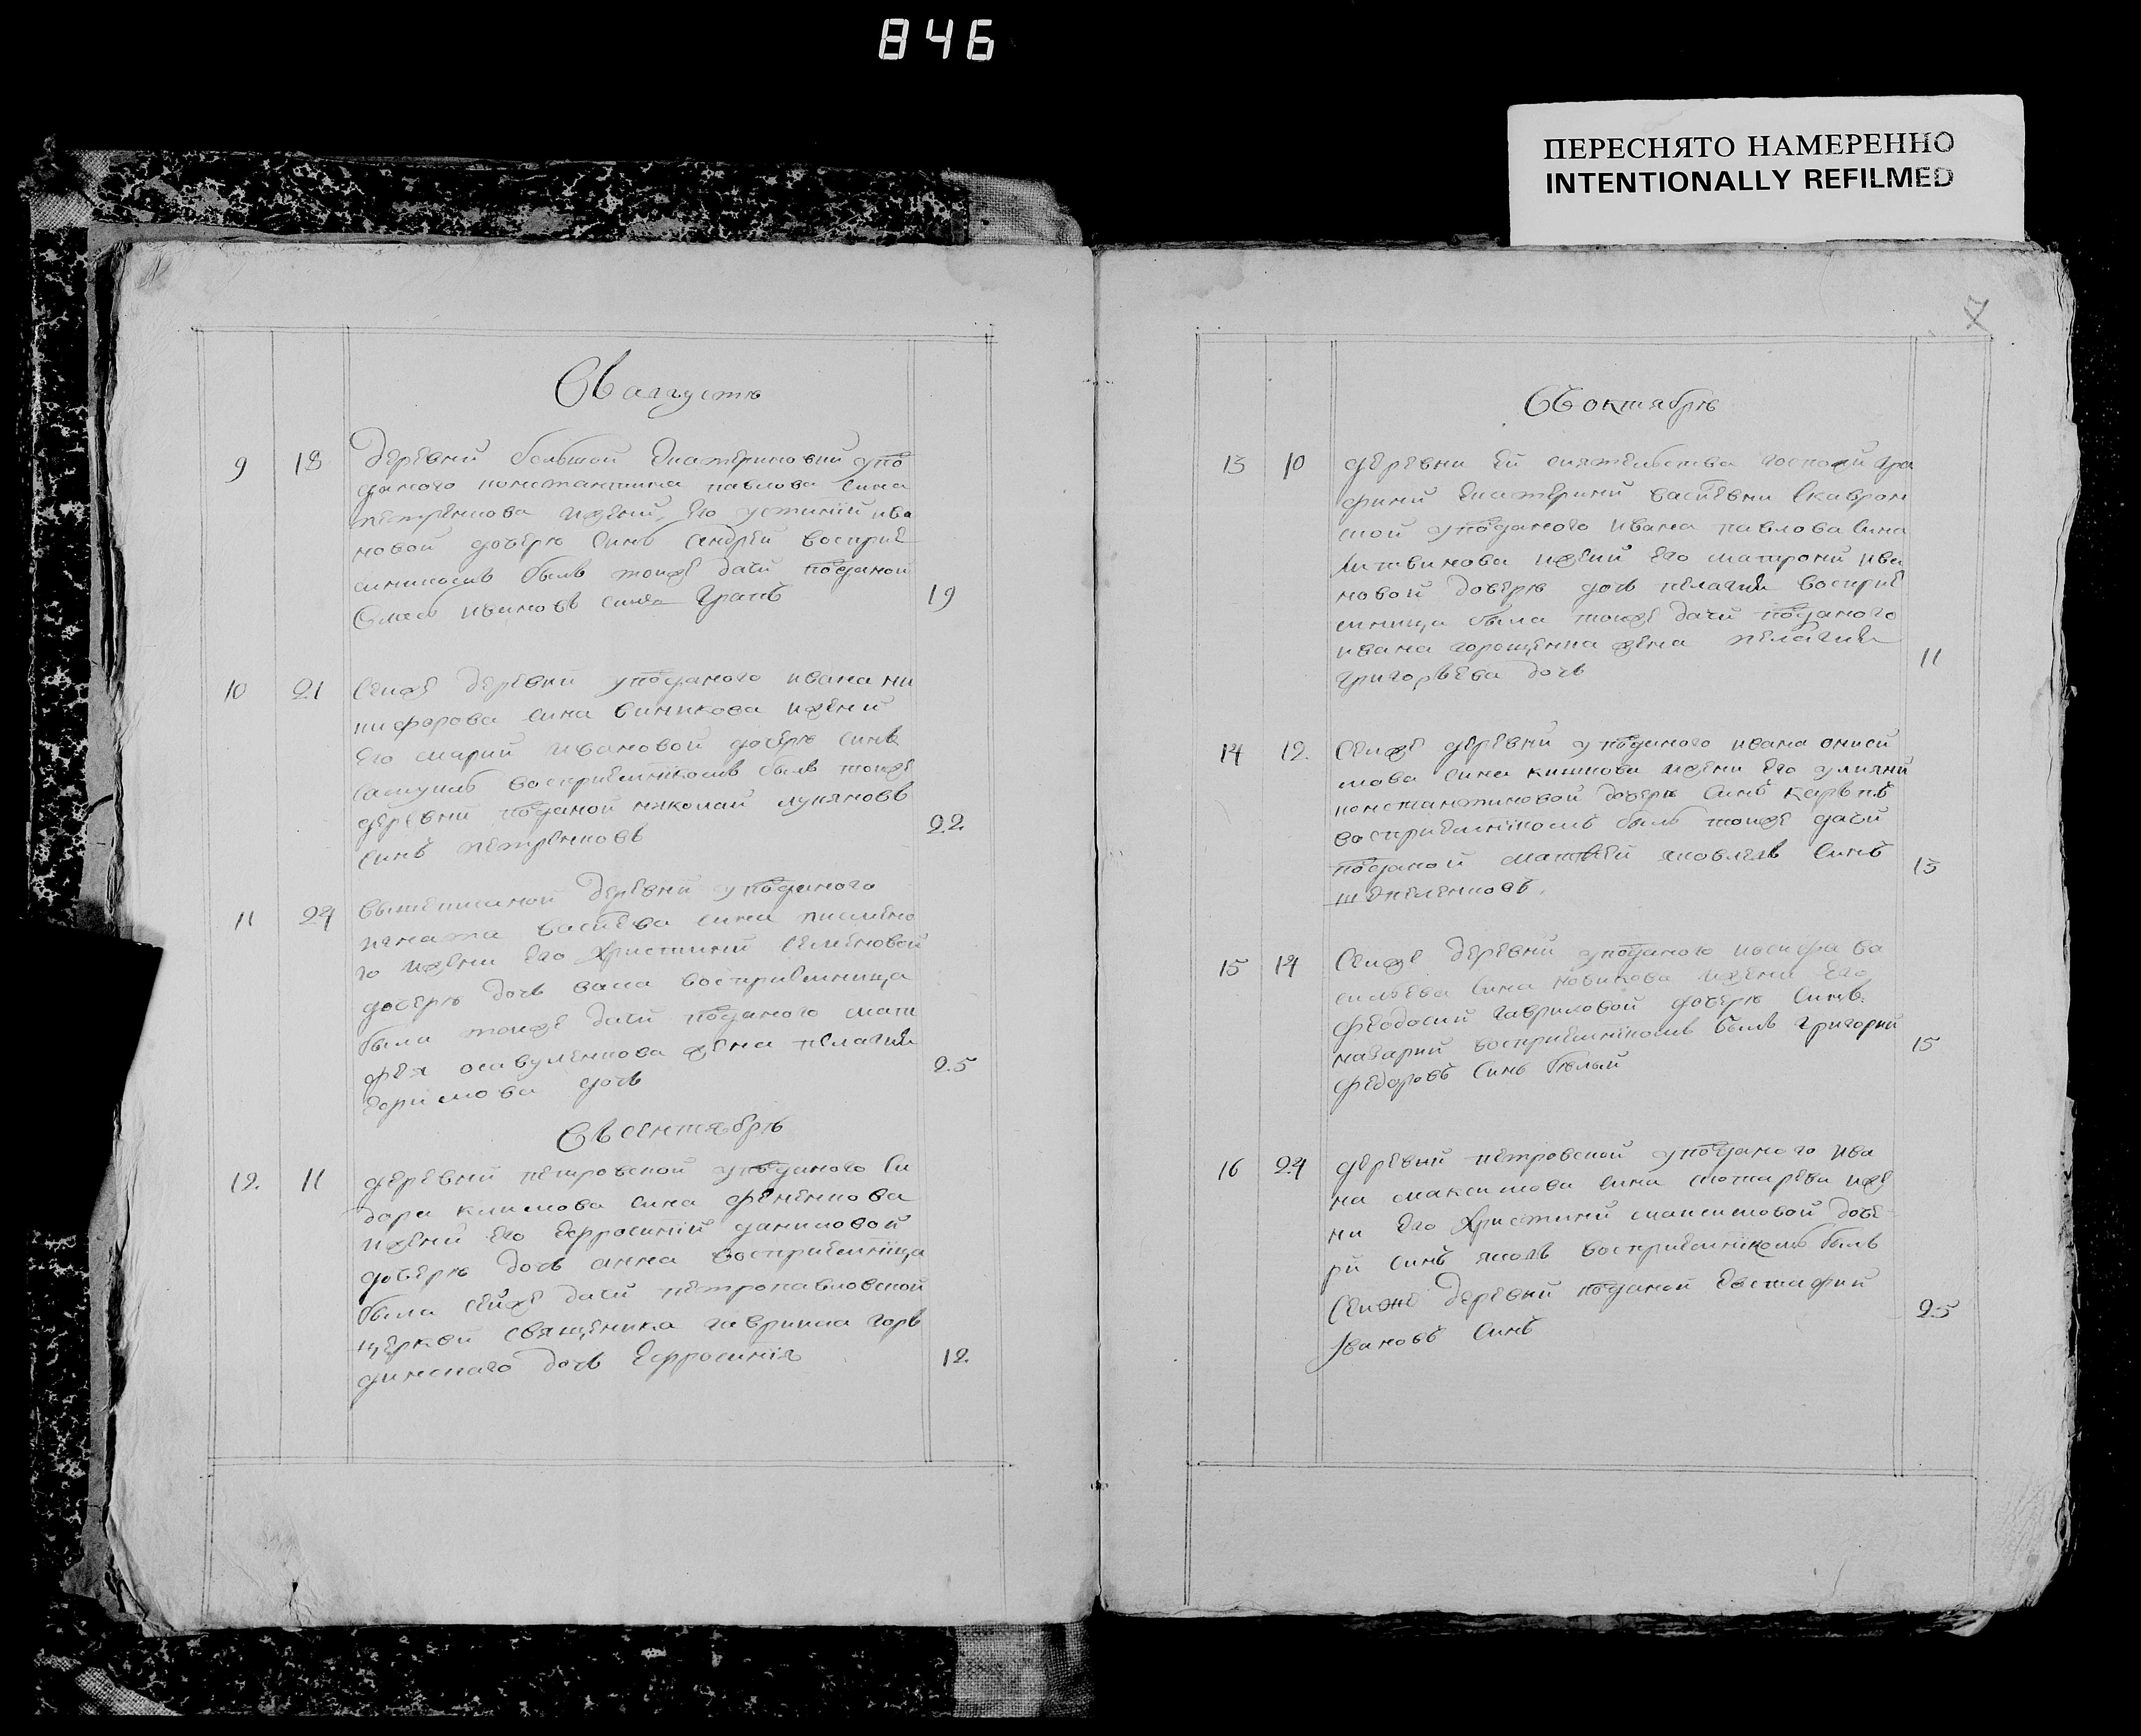 846
ПЕРЕСНЯТО НАМЕРЕННО
INTENTIONALLY REFILMED
Въ августѣ
9 18 деревни большой Екатериновки у по
даного константина павлова сина
петренкова и жени его устинии ива
новой дочерѣ синъ андрей восприе
мникомъ былъ тоижѣ дачи поданой
Власъ ивановъ синъ 19
10 21 Сеижѣ деревни у поданого ивана ни
кифорова сина и жени
его марии ивановой дочерѣ синъ
восприемникомъ былъ тоижѣ
деревни поданой николай лукяновъ
синъ петренковъ 22
11 24 вышеписаной деревни у поданого
игната васиева сина писмено
го и жени его Христини семеновой
дочерѣ дочъ восприемница
была тоижѣ дачи поданого мат
фея жена пелагия
дочъ 25
Въ сентябрѣ
12 11 деревни петровской у поданого Си
дора климова сина
и жени его Ефросинии даниловой
дочерѣ дочъ анна восприемница
была сеижѣ дачи петропавловской
церкви священика гавриила горъ
динского дочъ Ефросиния 12
7
Въ октябрѣ
13 10 деревни ей сиятельства госпожи гра
фини Екатерини васиевни Скаврон
ской у поданого ивана павлова сина
литвинова и жени его матрони ива
новой дочерѣ дочъ пелагия восприе
мница была тоижѣ дачи поданого
ивана жена пелагия
григорьева дочъ 11
14 12 Сеижѣ деревни у поданого ивана ониси
мова сина и жени его улияни
константиновой дочерѣ синъ карьпъ
восприемникомъ былъ тоижѣ дачи
поданой матвей яковлевъ синъ
13
15 14 Сеижѣ деревни у поданого иосифа ва
сильева сина новикова и жени его
феодосии гавриловой дочерѣ синъ
назарий восприемникомъ былъ григорий
федоровъ синъ бѣлый 15
16 24 деревни петровской у поданого ива
на максимова сина и же
ни его Христини максимовой доче
ри синъ яковъ восприемникомъ былъ
Сеиже деревни поданой Евстафий
Ивановъ синъ 25